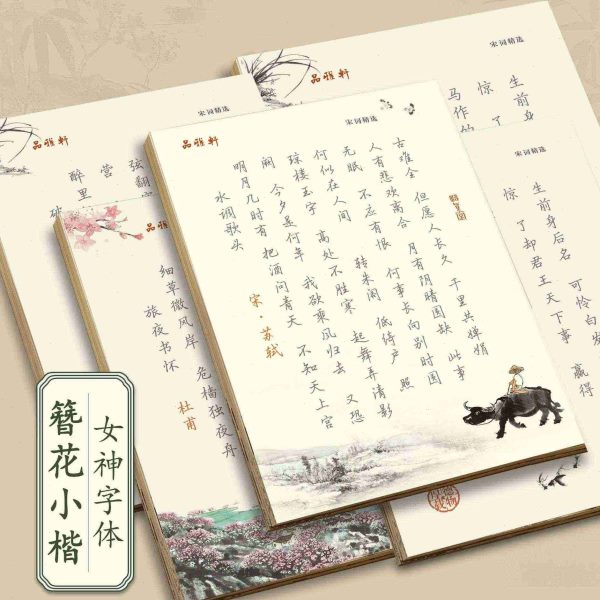 品雅轩
宋词精选
水调歌头
宋·苏轼
明月几时有 把酒问青天 不知天上宫
阙 今夕是何年 我欲乘风归去 又恐
琼楼玉宇 高处不胜寒 起舞弄清影
何似在人间 转朱阁 低绮户 照
无眠 不应有恨 何事长向别时圆
人有悲欢离合 月有阴晴圆缺 此事
古难全 但愿人长久 千里共婵娟
品雅轩
宋词精选
醉里
营
弦翻
破
品雅
旅夜书怀
杜甫
细草微风岸 危樯独夜舟
品雅轩
宋词精选
马作的
惊 了
生前身
宋词精选
惊 了却君王天下事 赢得
生前身后名 可怜白发
女神字体
簪花小楷